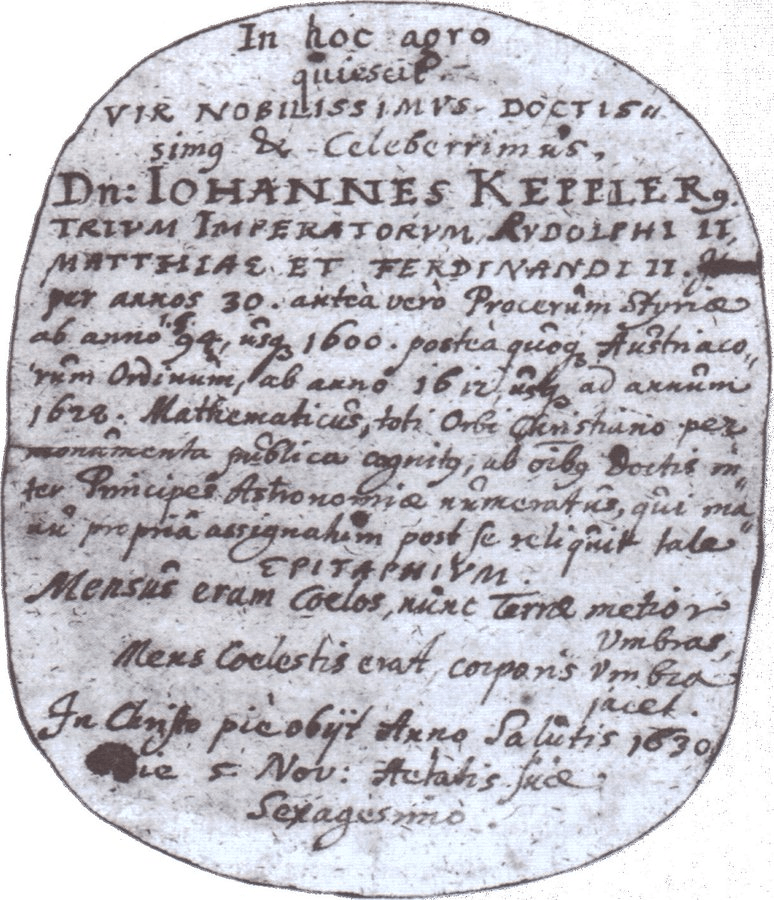 In hoc agro
quiescit
VIR NOBILISSIMUS DOCTIS„
simꝯ & Celeberrimus,
Dn: IOHANNES KEPPLERꝯ.
TRIUM IMPERATORUM RUDOLPHI II,
MATTHIAE ET FERDINANDI II.
per annos 30. anteà verò Procerûm Styriæ
ab anno 94, ûsqꝫ 1600. posteà quôqꝫ Aûstriaco„
rûm Ordinûm, ab anno 1612, ûsqꝫ ad annûm
1628. Mathematicûs, toti Orbi Christiano per
monûmenta pûblica cognitꝯ, ab õibꝯ Doctis in„
ter Principes Astronomiæ nûmeratûs, qûi ma„
nû propriâ assignatum post se reliqûit tale
EPITAPHIUM.
Mensûs eram Coelos, nûnc Terræ metior
Umbras,
Mens Coelestis erat, corporis Umbra
jacet.
In Christo piè obijt Anno Salûtis 1630,
die 5 Nov: Aetatis suæ
Sexagesimo